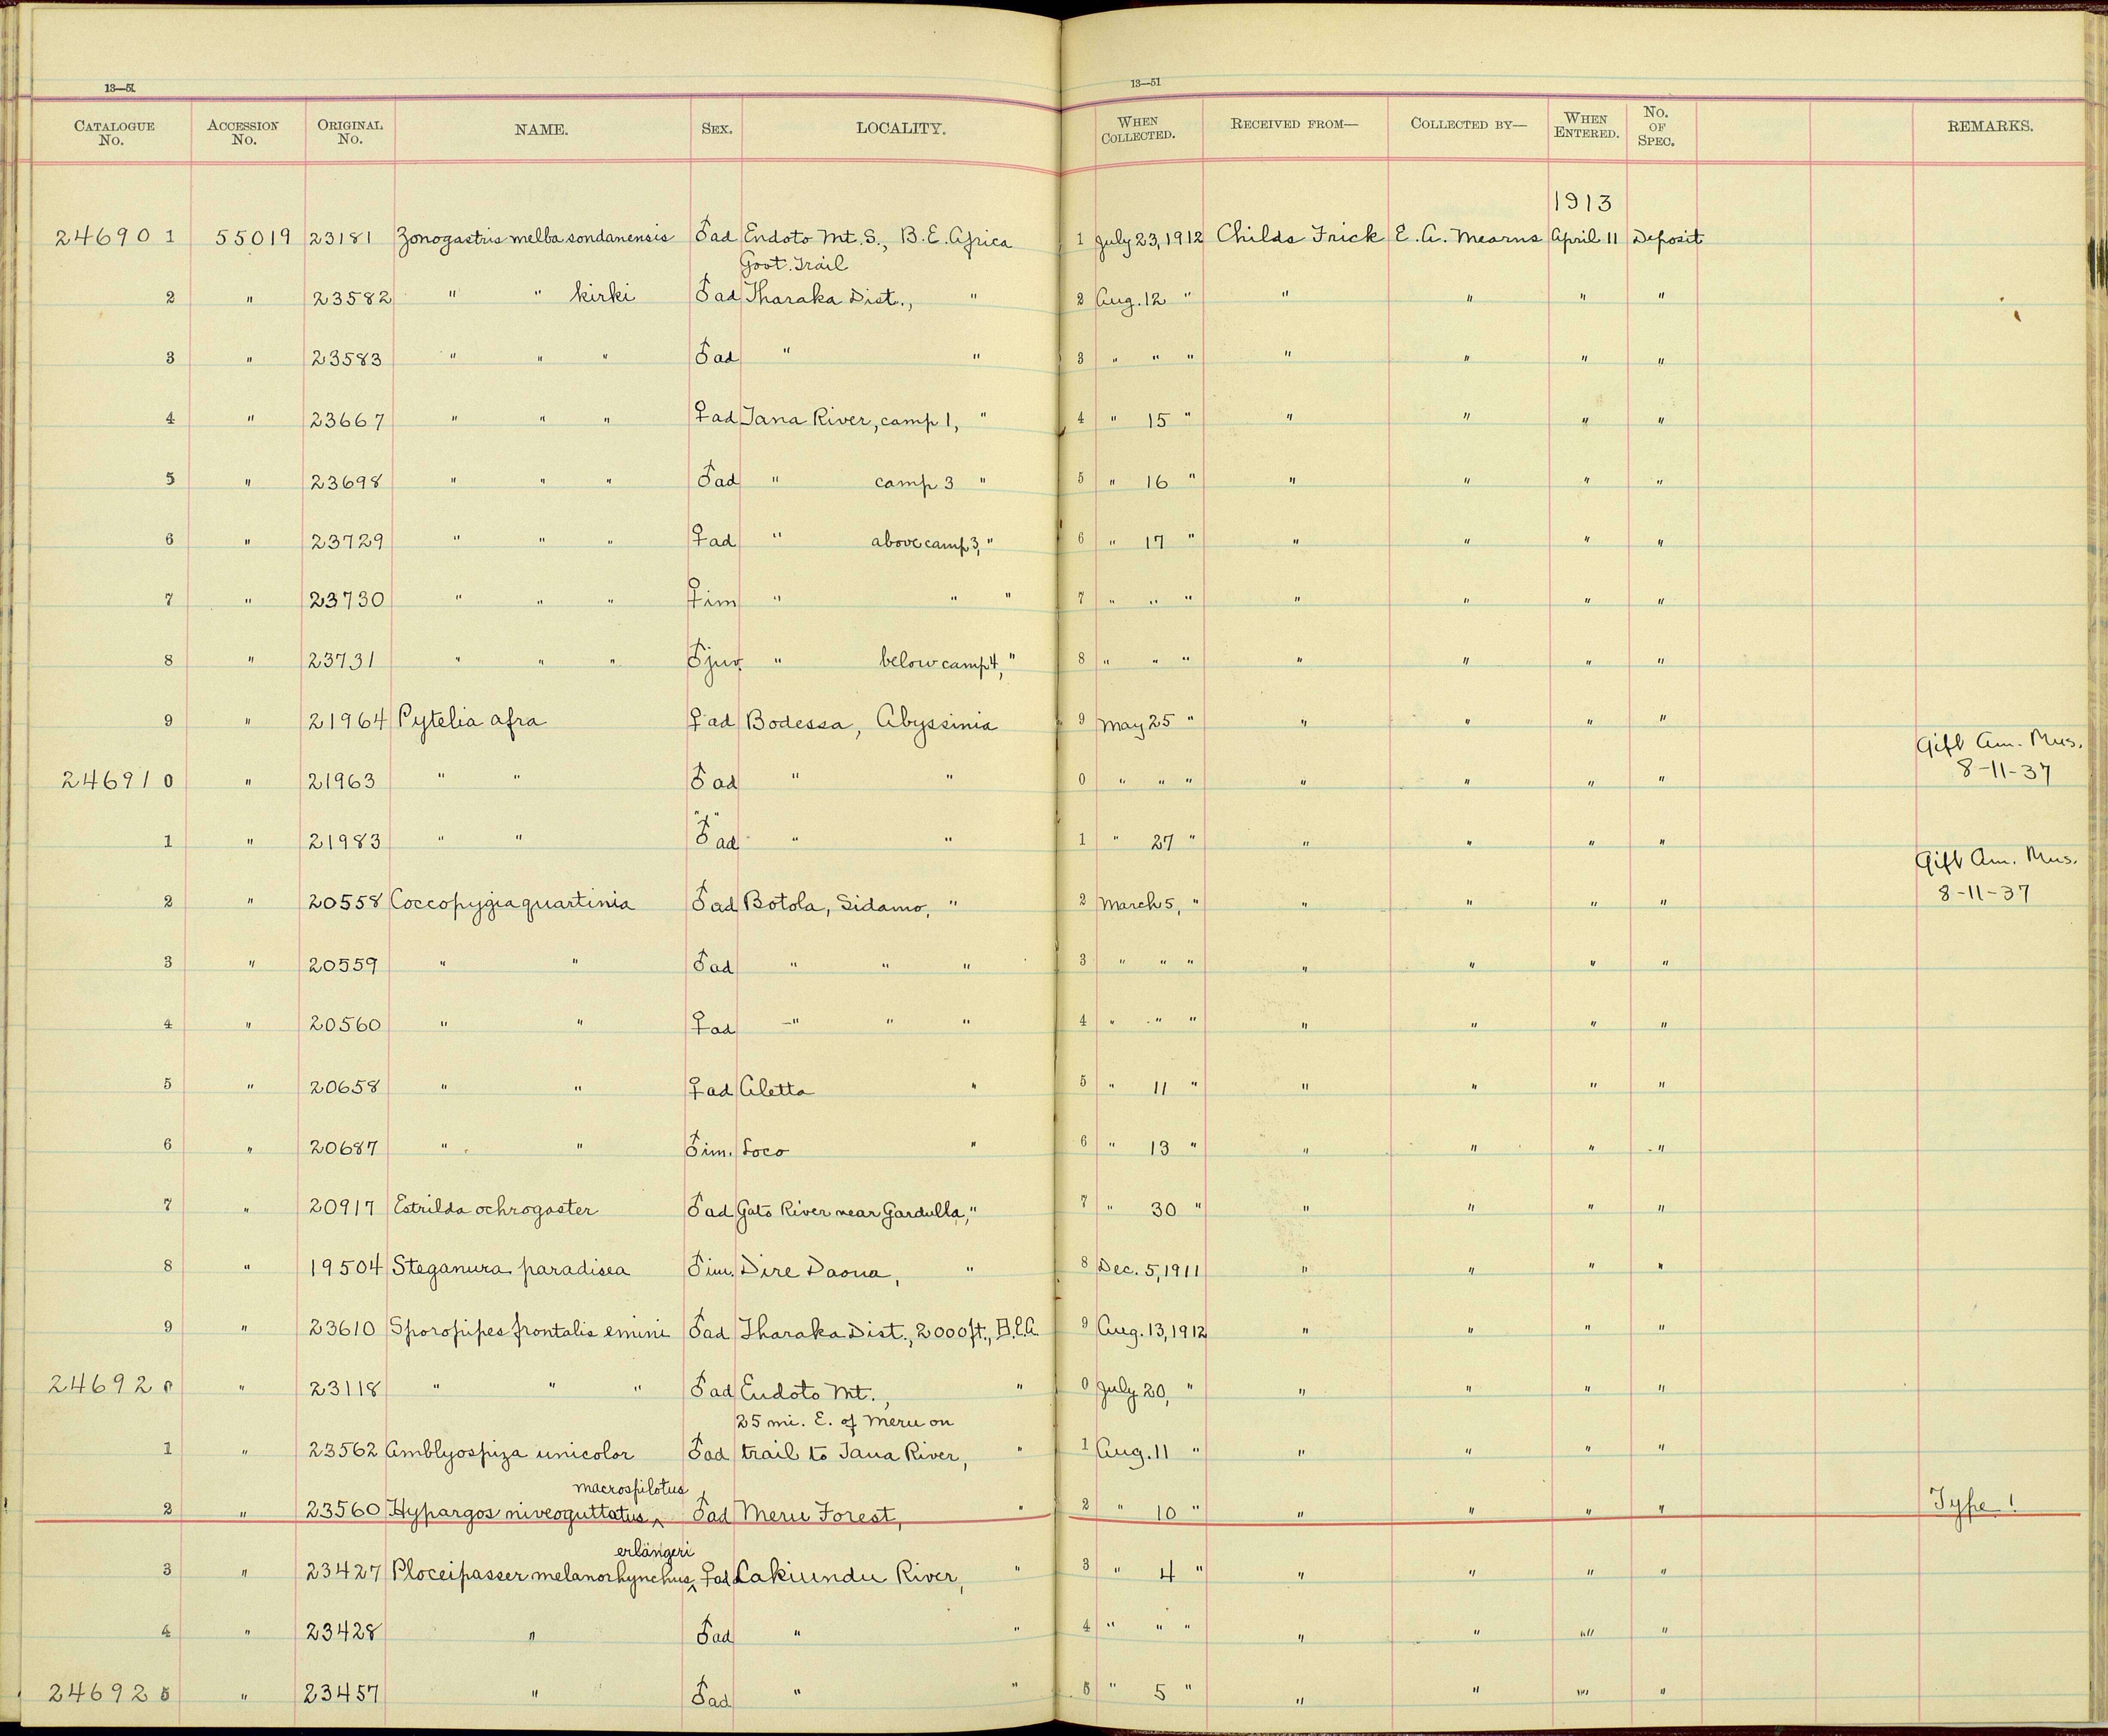 13—51
13—51
CATALOGUE No. ACCESSION No. ORIGINAL No. NAME. SEX. LOCALITY. WHEN COLLECTED. RECEIVED FROM— COLLECTED BY— WHEN ENTERED. No. OF SPEC. REMARKS.
1913
246901 55019 23181 Zonogastris melba sondanensis ♂ad Endoto Mt. S., B. E. Africa 1 July 23, 1912 Childs Frick E. A. Mearns April 11 Deposit
Govt. Trail
2 " 23582 " " kirki ♂ad Tharaka Dist., " 2 Aug. 12 " " " " "
3 " 23583 " " " ♂ad " " 3 " " " " " " "
4 " 23667 " " " ♀ad Tana River, camp 1, " 4 " 15 " " " " "
5 " 23698 " " " ♂ad " camp 3 " 5 " 16 " " " " "
6 " 23729 " " " ♀ad " above camp 3, " 6 " 17 " " " " "
7 " 23730 " " " ♀im " " " 7 " " " " " " "
8 " 23731 " " " ♂juv. " below camp 4, " 8 " " " " " " "
9 " 21964 Pytelia afra ♀ad Bodessa, Abyssinia 9 May 25 " " " " "
Gift Am. Mus.
246910 " 21963 " " ♂ad " " 0 " " " " " " " 8-11-37
1 " 21983 " " "♂" ad " " 1 " 27 " " " " "
Gift Am. Mus.
2 " 20558 Coccopygia quartinia ♂ad Botola, Sidamo, " 2 March 5, " " " " " 8-11-37
3 " 20559 " " ♂ad " " " 3 " " " " " " "
4 " 20560 " " ♀ad " " " 4 " " " " " " "
5 " 20658 " " ♀ad Aletta " 5 " 11 " " " " "
6 " 20687 " " ♂im. Loco " 6 " 13 " " " " "
7 " 20917 Estrilda ochrogaster ♂ad Gato River near Gardulla, " 7 " 30 " " " " "
8 " 19504 Steganura paradisea ♂im. Dire Daoua, " 8 Dec. 5, 1911 " " " "
9 " 23610 Sporopipes frontalis emini ♂ad Tharaka Dist., 2000 ft., B.E.A. 9 Aug. 13, 1912 " " " "
246920 " 23118 " " " ♂ad Endoto Mt., " 0 July 20, " " " " "
25 mi. E. of Meru on
1 " 23562 Amblyospiza unicolor ♂ad trail to Tana River, " 1 Aug. 11 " " " " "
macrospilotus
2 " 23560 Hypargos niveoguttatus ^ ♂ad Meru Forest, " 2 " 10 " " " " " Type!
erlangeri
3 " 23427 Ploceipasser melanorhynchus ^ ♀ad Lakiundu River, " 3 " 4 " " " " "
4 " 23428 " ♂ad " " 4 " " " " " "" "
246925 " 23457 " ♂ad " " 5 " 5 " " " "" "